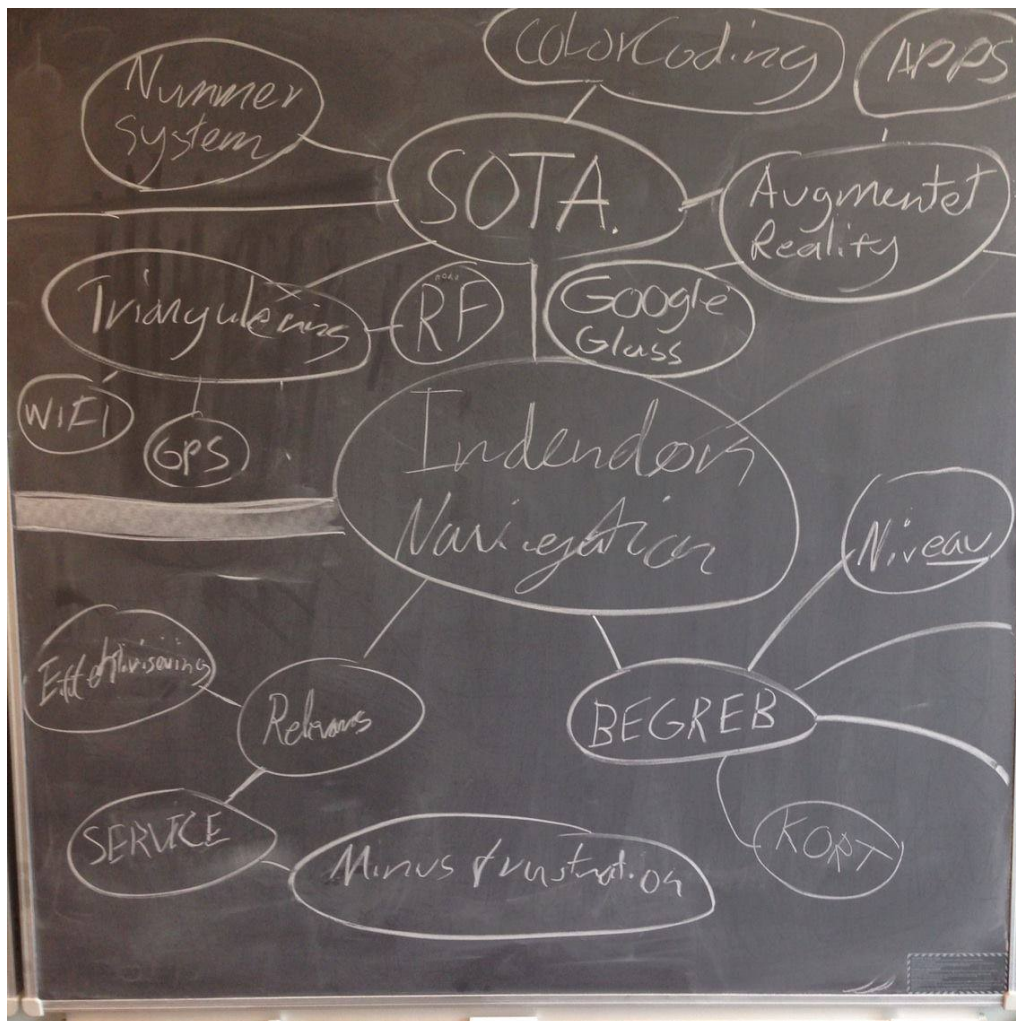 ColorCoding
APPS
Nummer
System
SOTA.
Augmentet
Reality
Triangulering
RF
Google
Glass
WiFi
GPS
Indendørs
Navigation
Niveau
Effektivisering
Relevans
BEGREB
SERVICE
Minus frustration
KORT